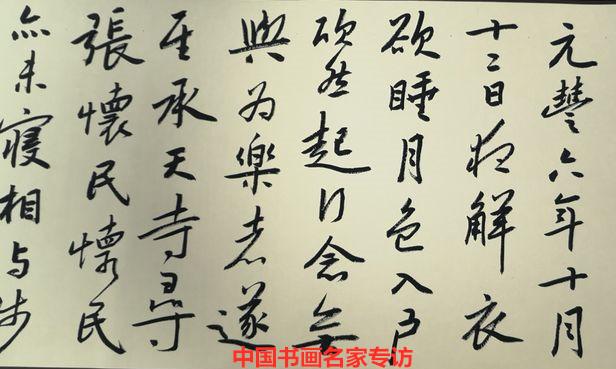 元豐六年十月
十二日夜解衣
欲睡月色入戶
欣然起行念無
與為樂者遂
至承天寺尋
張懷民懷民
亦未寢相与步
中国书画名家专访